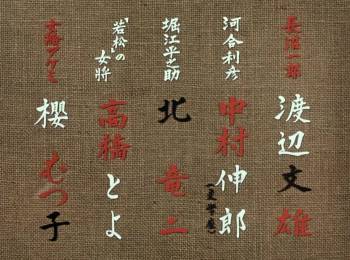 長沼一郎
渡辺文雄
河合利彦
中村伸郎
(文学座)
堀江平之助
北竜二
「若松」の
女将
高橋とよ
アケミ
櫻むつ子